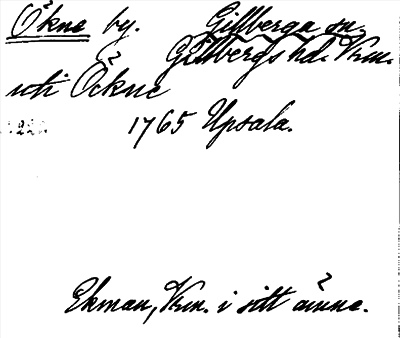 Ökne by. Gillberga sn.
Gillbergs hd. Vrm.
uti Öckne
1765 Upsala.
Ekman, Vrm. i sitt ämne.